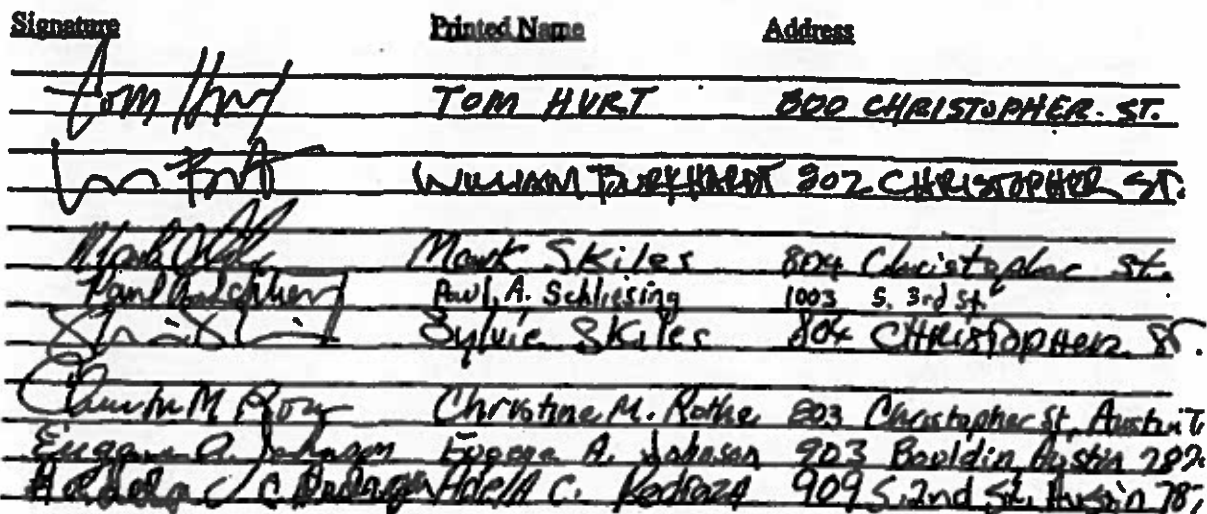 Signature Printed Name Address
Tom Hurt TOM HURT 800 CHRISTOPHER ST.
WILLIAM BURKHARDT 802 CHRISTOPHER ST.
Mark Skiles 804 Christopher St.
Paul A. Schliesing 1003 S. 3rd St.
Sylvie Skiles 804 CHRISTOPHER ST.
Christine M. Rothe 803 Christopher St, Austin T
Eugene A. Johnson Eugene A. Johnson 903 Bouldin, Austin 787
C. 909 S. 2nd St. Austin 787